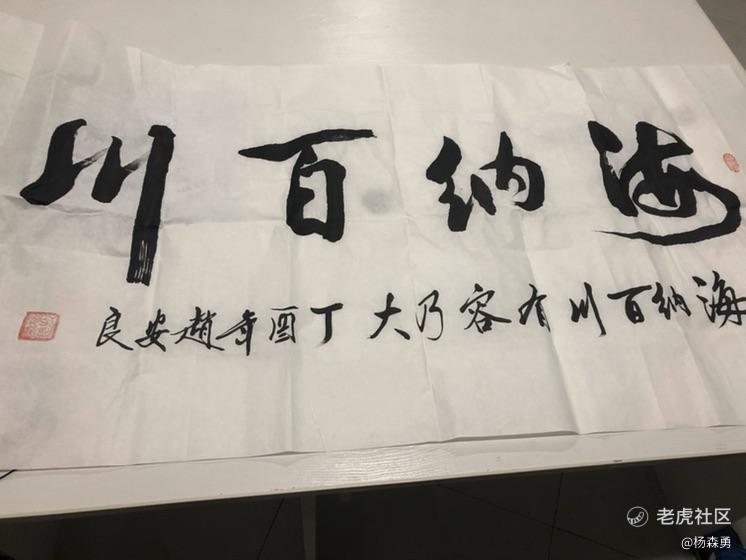 海纳百川
海纳百川有容乃大丁酉年趙安良
老虎社区
@杨森勇